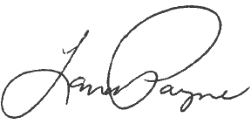 Lana Payne